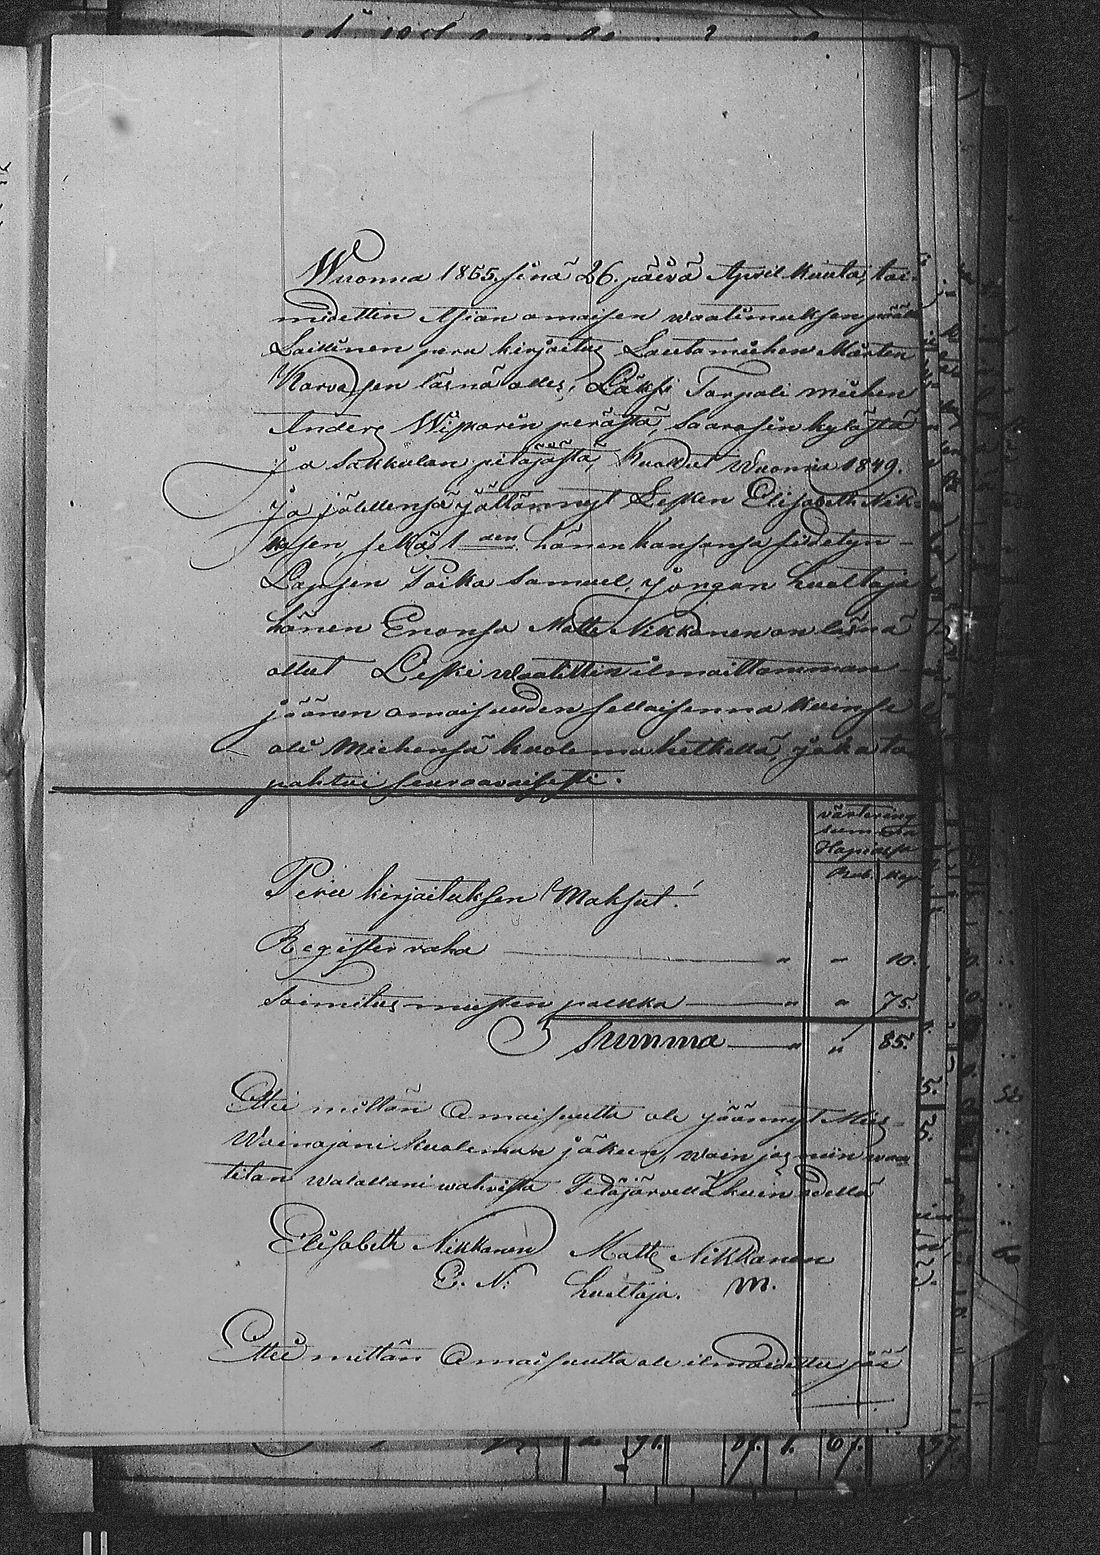 Wuonna 1865 sinä 26. päivä April kuuta, toi-
midettin Asian omaisen waatimuksen perästä
Laillinen peru kirjoitus Lautamiehen Mårten
Karvasen läsnä olles, Läksi Torpali miehen
Anders Wiskarin perästä, Saarosin kylästä
ja Sakkulan pitäjästä, kuollut Wuonna 1849.
ja jälellensä jättännyt Lesken Elisabeth Nik-
kasen, sekä 1 den hänen kansansa sidetyn
Lapsen Poika Samuel, jongan huoltaja
hänen Enonsa Matts Nikkanen on läsnä
ollut Leski waatittin ilmoittamman
jäänen omaisuuden sellaisenna kuinse
oli Miehensä kuolema hetkellä, joka ta
pahtui seuraavaisesti.
värtering
summa
Hopiassa
Rub. Kop
Peru kirjoituksen Maksut!
Registei raha " " 10.
Toimitus miesten palkka " " 75.
Summa " " 85.
Ettei mittän Omaisuutta ole jäännyt Mies-
Wainajani kuoleman jäkeen, wain jos niin waa
titan walallani wahvista Petäjärvellä kuin edellä
Elisabeth Nikkanen Matts Nikkanen
E. N. huoltaja. M.
Ettei mittän Omaisuutta ole ilmoidettu jää